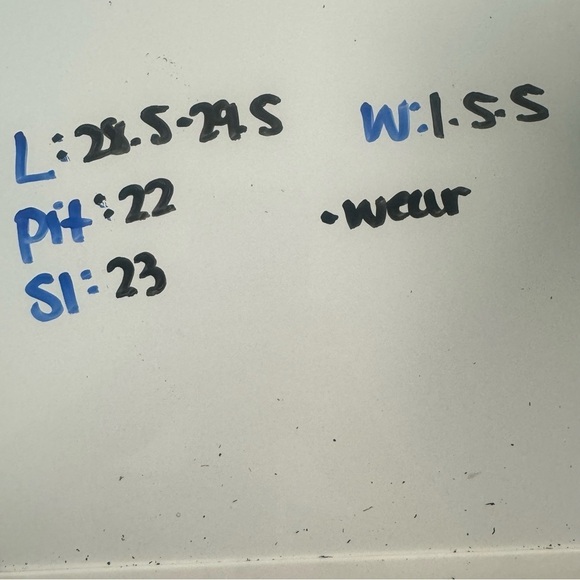 L: 28.5-29.5
Pit: 22
Sl: 23
W: 1.5.5
• wear